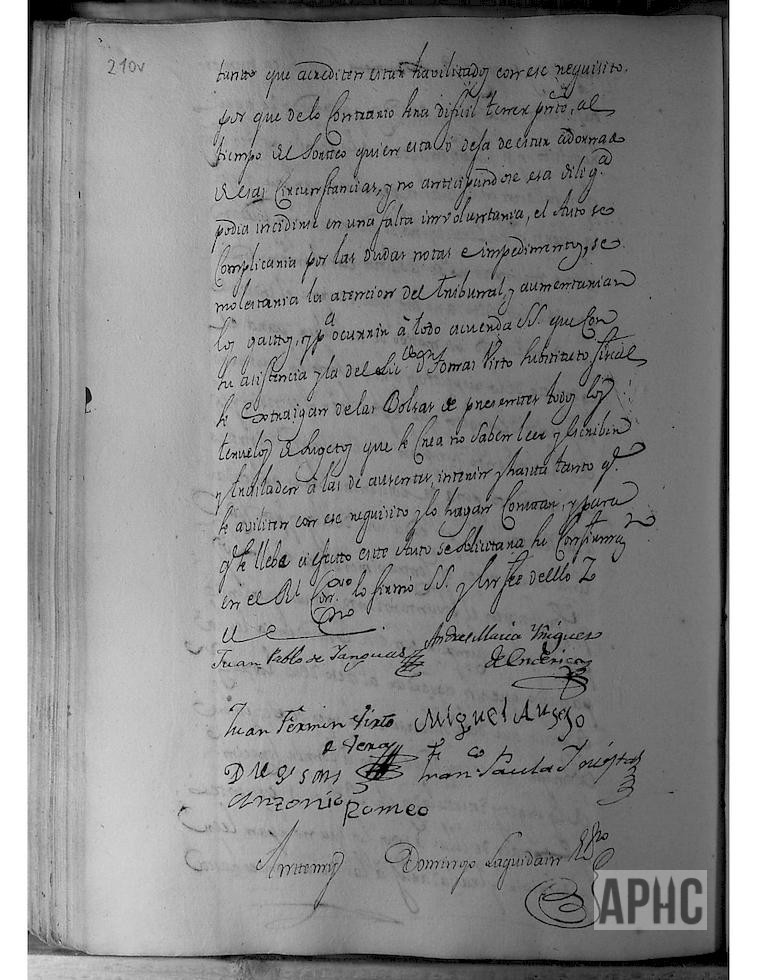 210v
tanto que acrediten estar havilitados con ese requisito.
por que de lo Contrario sera dificil tener prto, al
tiempo del Sorteo quien esta ó deja de estar adornado
de esas Circunstancias, y no anticipandose esa dilig.a
podia incidirse en una falta involuntaria, el Auto se
Complicaria por las dudas notas e impedimentos, se
molestaria la atencion del tribunal, y aumentarian
los gastos, y p.a ocurrir â todo acuerda SS. que con
su asistencia y la del Lic.do Dn Tomas Virto substituto fiscal
se Extraigan de las Bolsas de presentes todos los
teruelos de Sugetos que se Crea no Saben leer y escribir
y trasladen â las de ausentes, interin y hasta tanto q.e
se aviliten con ese requisito y lo hagan Constar, y para
q.e se llebe a efecto este Auto se Solicitara su Confirmaz.n
en el R.l Con. lo firmó SS. y hr fee de ello
Juan Pablo de Tanguas Andres Maria Yñiguez
de
Juan Fermin Virto Miguel Ausejo
de Vera
Fran.co Paula
Antonio Romeo
Antemi Domingo Laguidain Ess.no
APHC